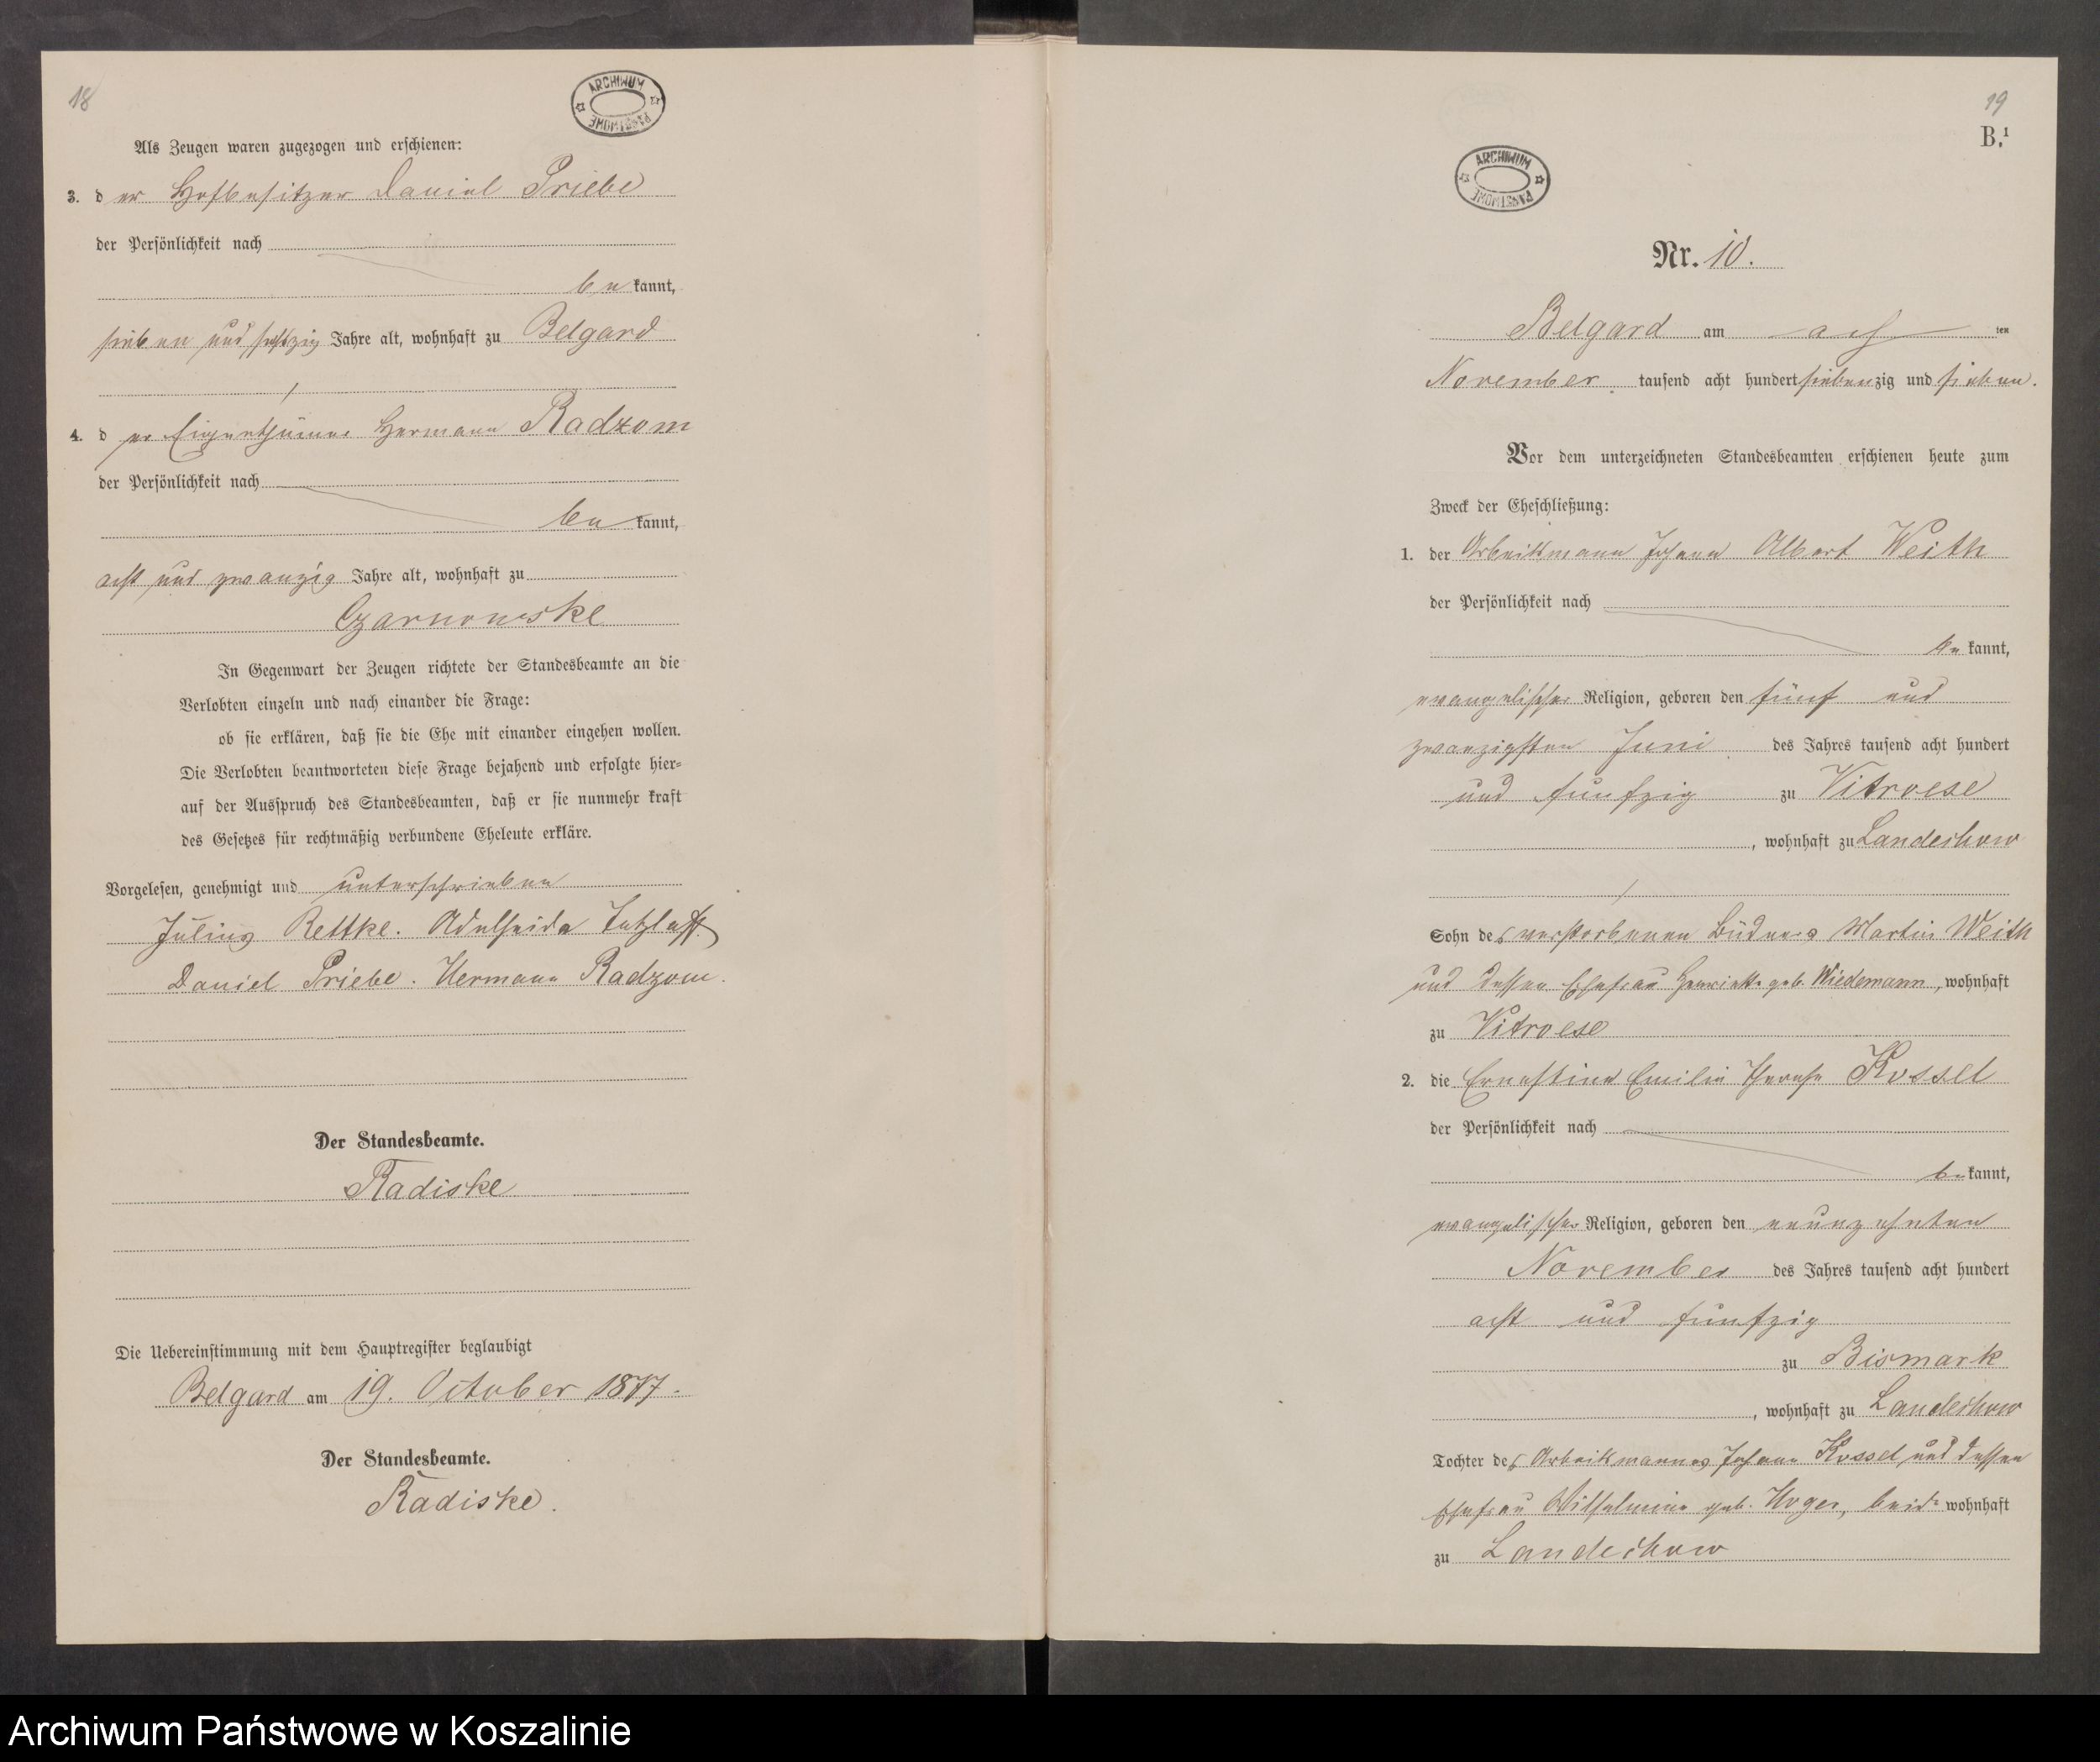 18
ARCHIWUM PAŃSTWOWE
Als Zeugen waren zugezogen und erschienen:
3. d er Hofbesitzer Daniel Priebe
der Persönlichkeit nach
be kannt,
sieben und sechszig Jahre alt, wohnhaft zu Belgard
4. d er Eigenthümer Hermann Radzom
der Persönlichkeit nach
be kannt,
acht und zwanzig Jahre alt, wohnhaft zu
Czarnowske
In Gegenwart der Zeugen richtete der Standesbeamte an die
Verlobten einzeln und nach einander die Frage:
ob sie erklären, daß sie die Ehe mit einander eingehen wollen.
Die Verlobten beantworteten diese Frage bejahend und erfolgte hier=
auf der Ausspruch des Standesbeamten, daß er sie nunmehr kraft
des Gesetzes für rechtmäßig verbundene Eheleute erkläre.
Vorgelesen, genehmigt und unterschrieben
Julius Rettke. Adelheide Tetzlaff
Daniel Priebe. Hermann Radzom.
Der Standesbeamte.
Radiske
Die Uebereinstimmung mit dem Hauptregister beglaubigt
Belgard am 19. October 1877.
Der Standesbeamte.
Radiske.
19
B.1
ARCHIWUM PAŃSTWOWE
Nr. 10.
Belgard am ach ten
November tausend acht hundert siebenzig und sieben.
Vor dem unterzeichneten Standesbeamten erschienen heute zum
Zweck der Eheschließung:
1. der Arbeitsmann Johann Albert Weith
der Persönlichkeit nach
be kannt,
evangelischer Religion, geboren den fünf und
zwanzigsten Juni des Jahres tausend acht hundert
und funfzig zu Vitroese
, wohnhaft zu Landechow
Sohn des verstorbenen Büdners Martin Weith
und dessen Ehefrau Henriette geb. Wiedemann, wohnhaft
zu Vitroese
2. die Ernestine Emilie Therese Kossel
der Persönlichkeit nach
be kannt,
evangelischer Religion, geboren den neunzehnten
November des Jahres tausend acht hundert
acht und funfzig
zu Bismark
, wohnhaft zu Landechow
Tochter des Arbeitsmannes Johann Kossel und dessen
Ehefrau Wilhelmine geb. Hoger, beide wohnhaft
zu Landechow
Archiwum Państwowe w Koszalinie